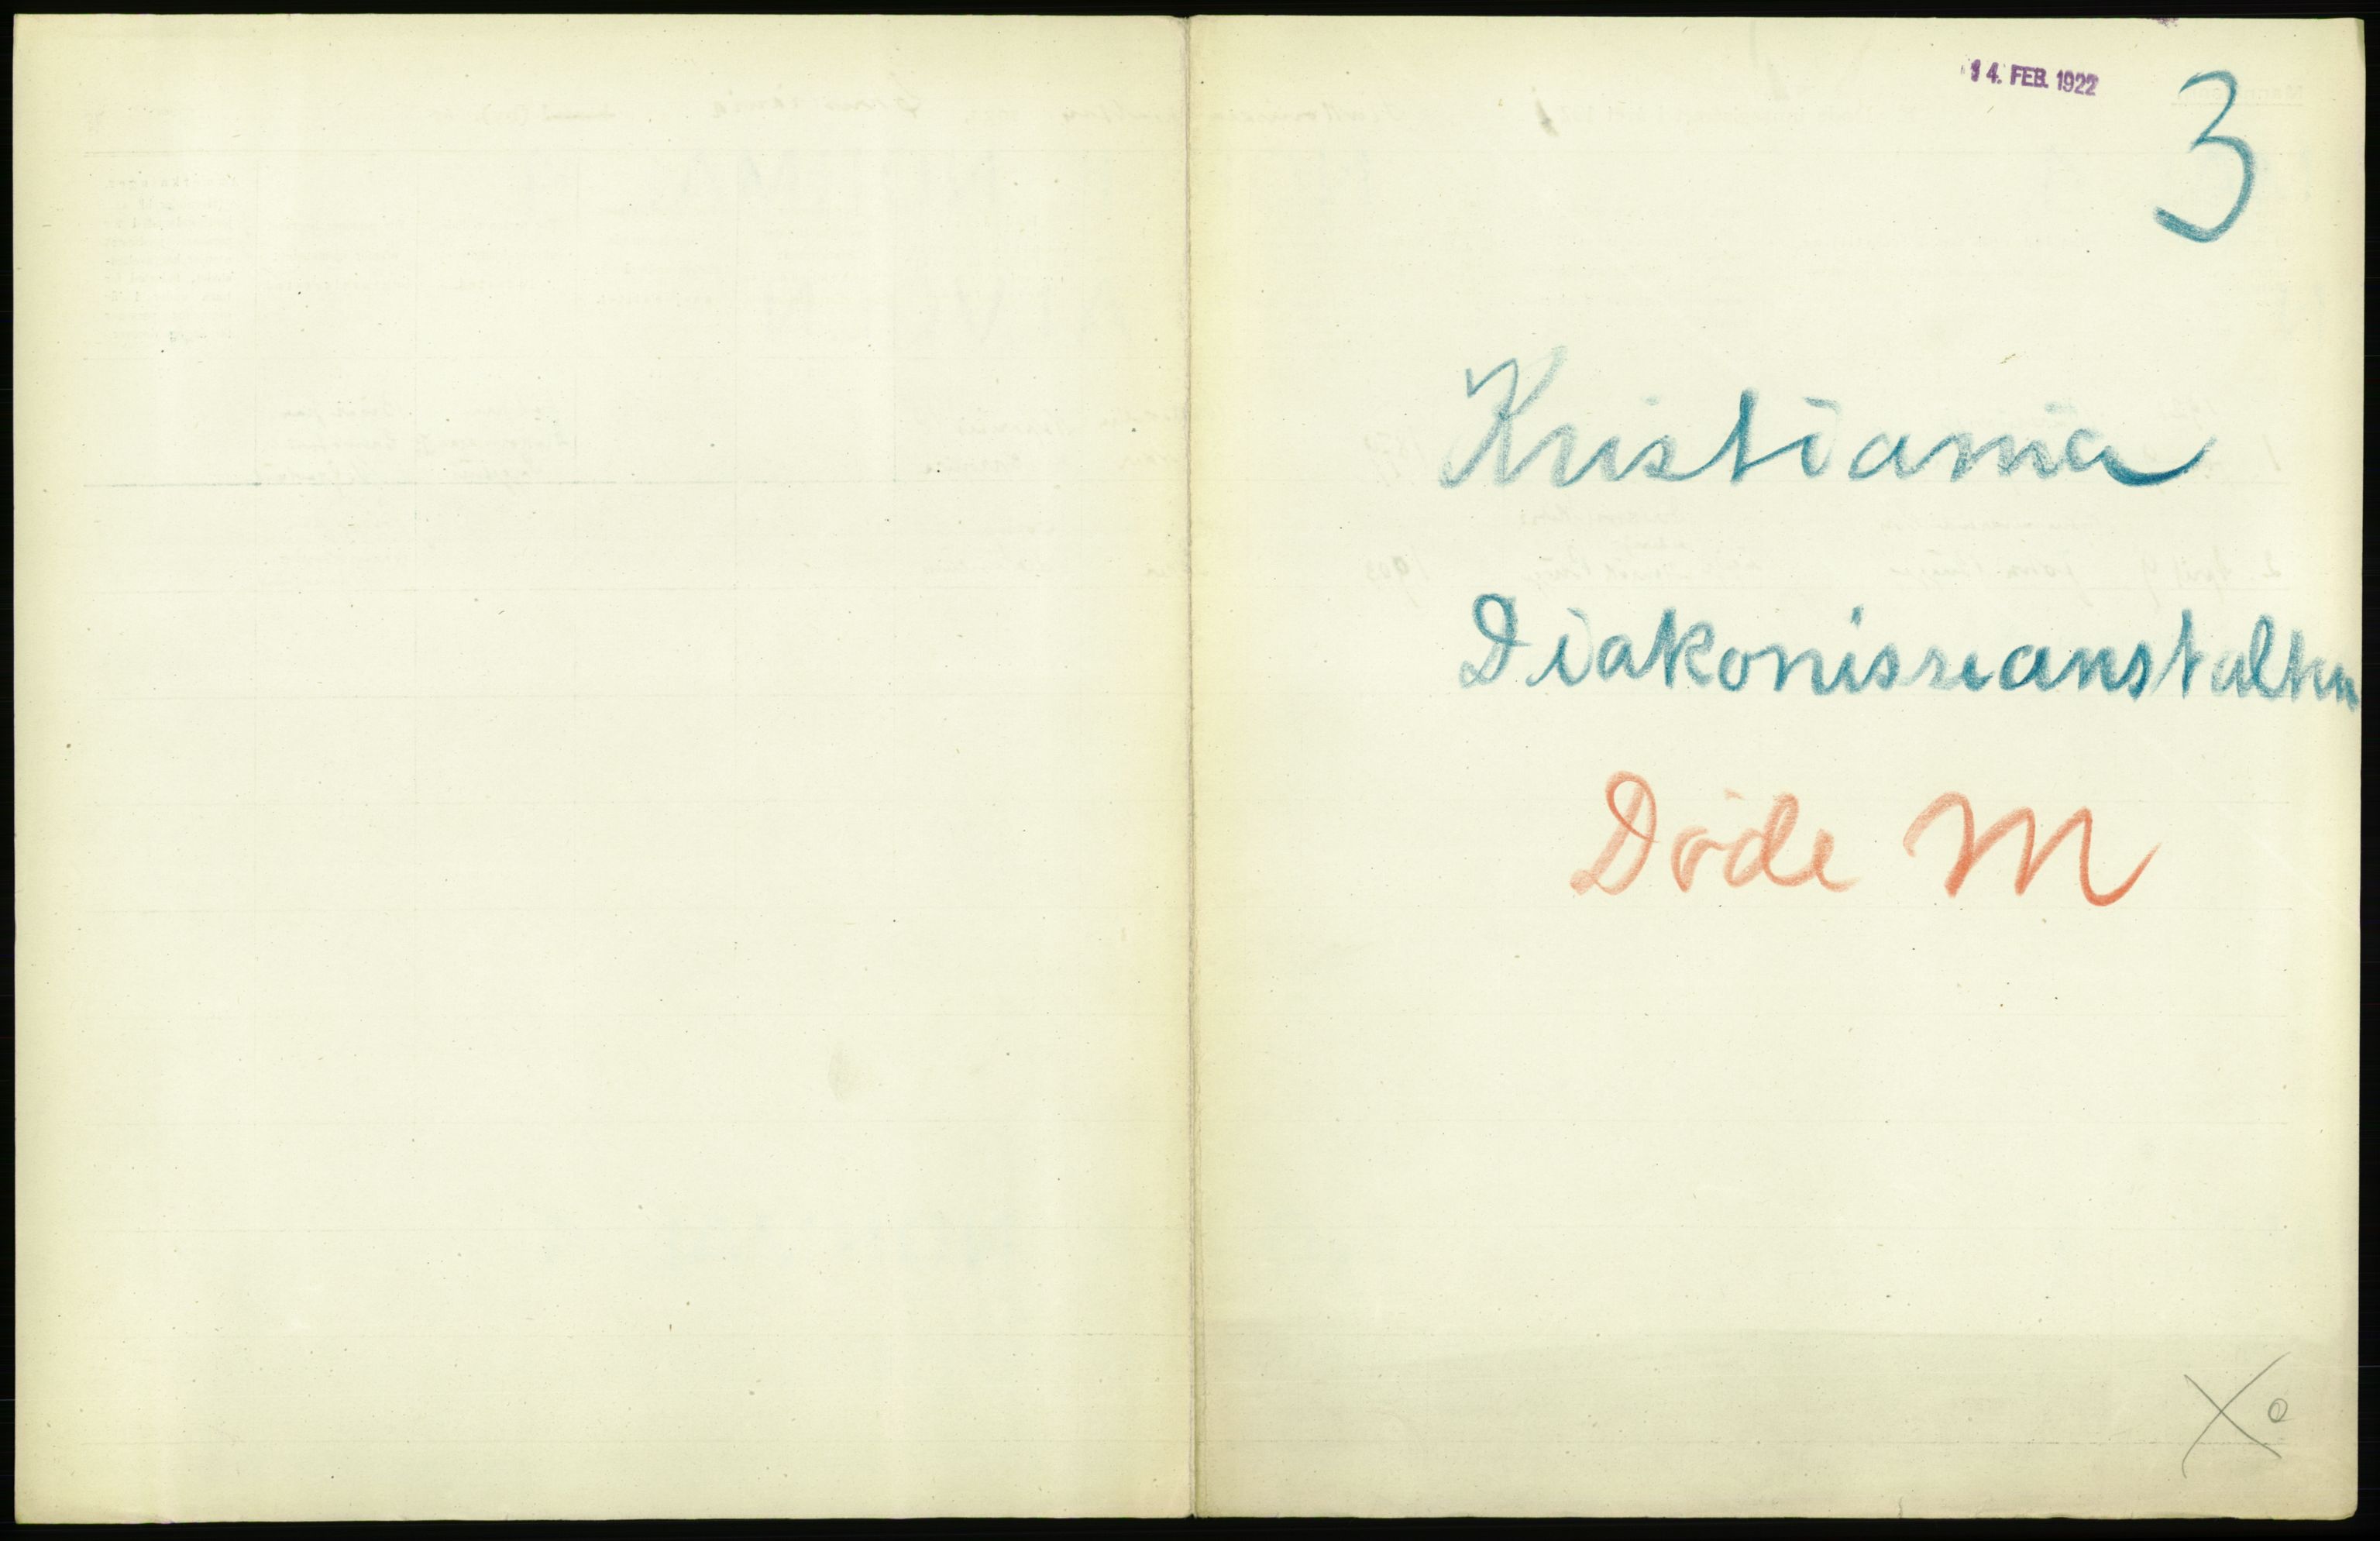 14. FEB. 1922
3
Kristiania
Diakonisseanstalten
Døde M